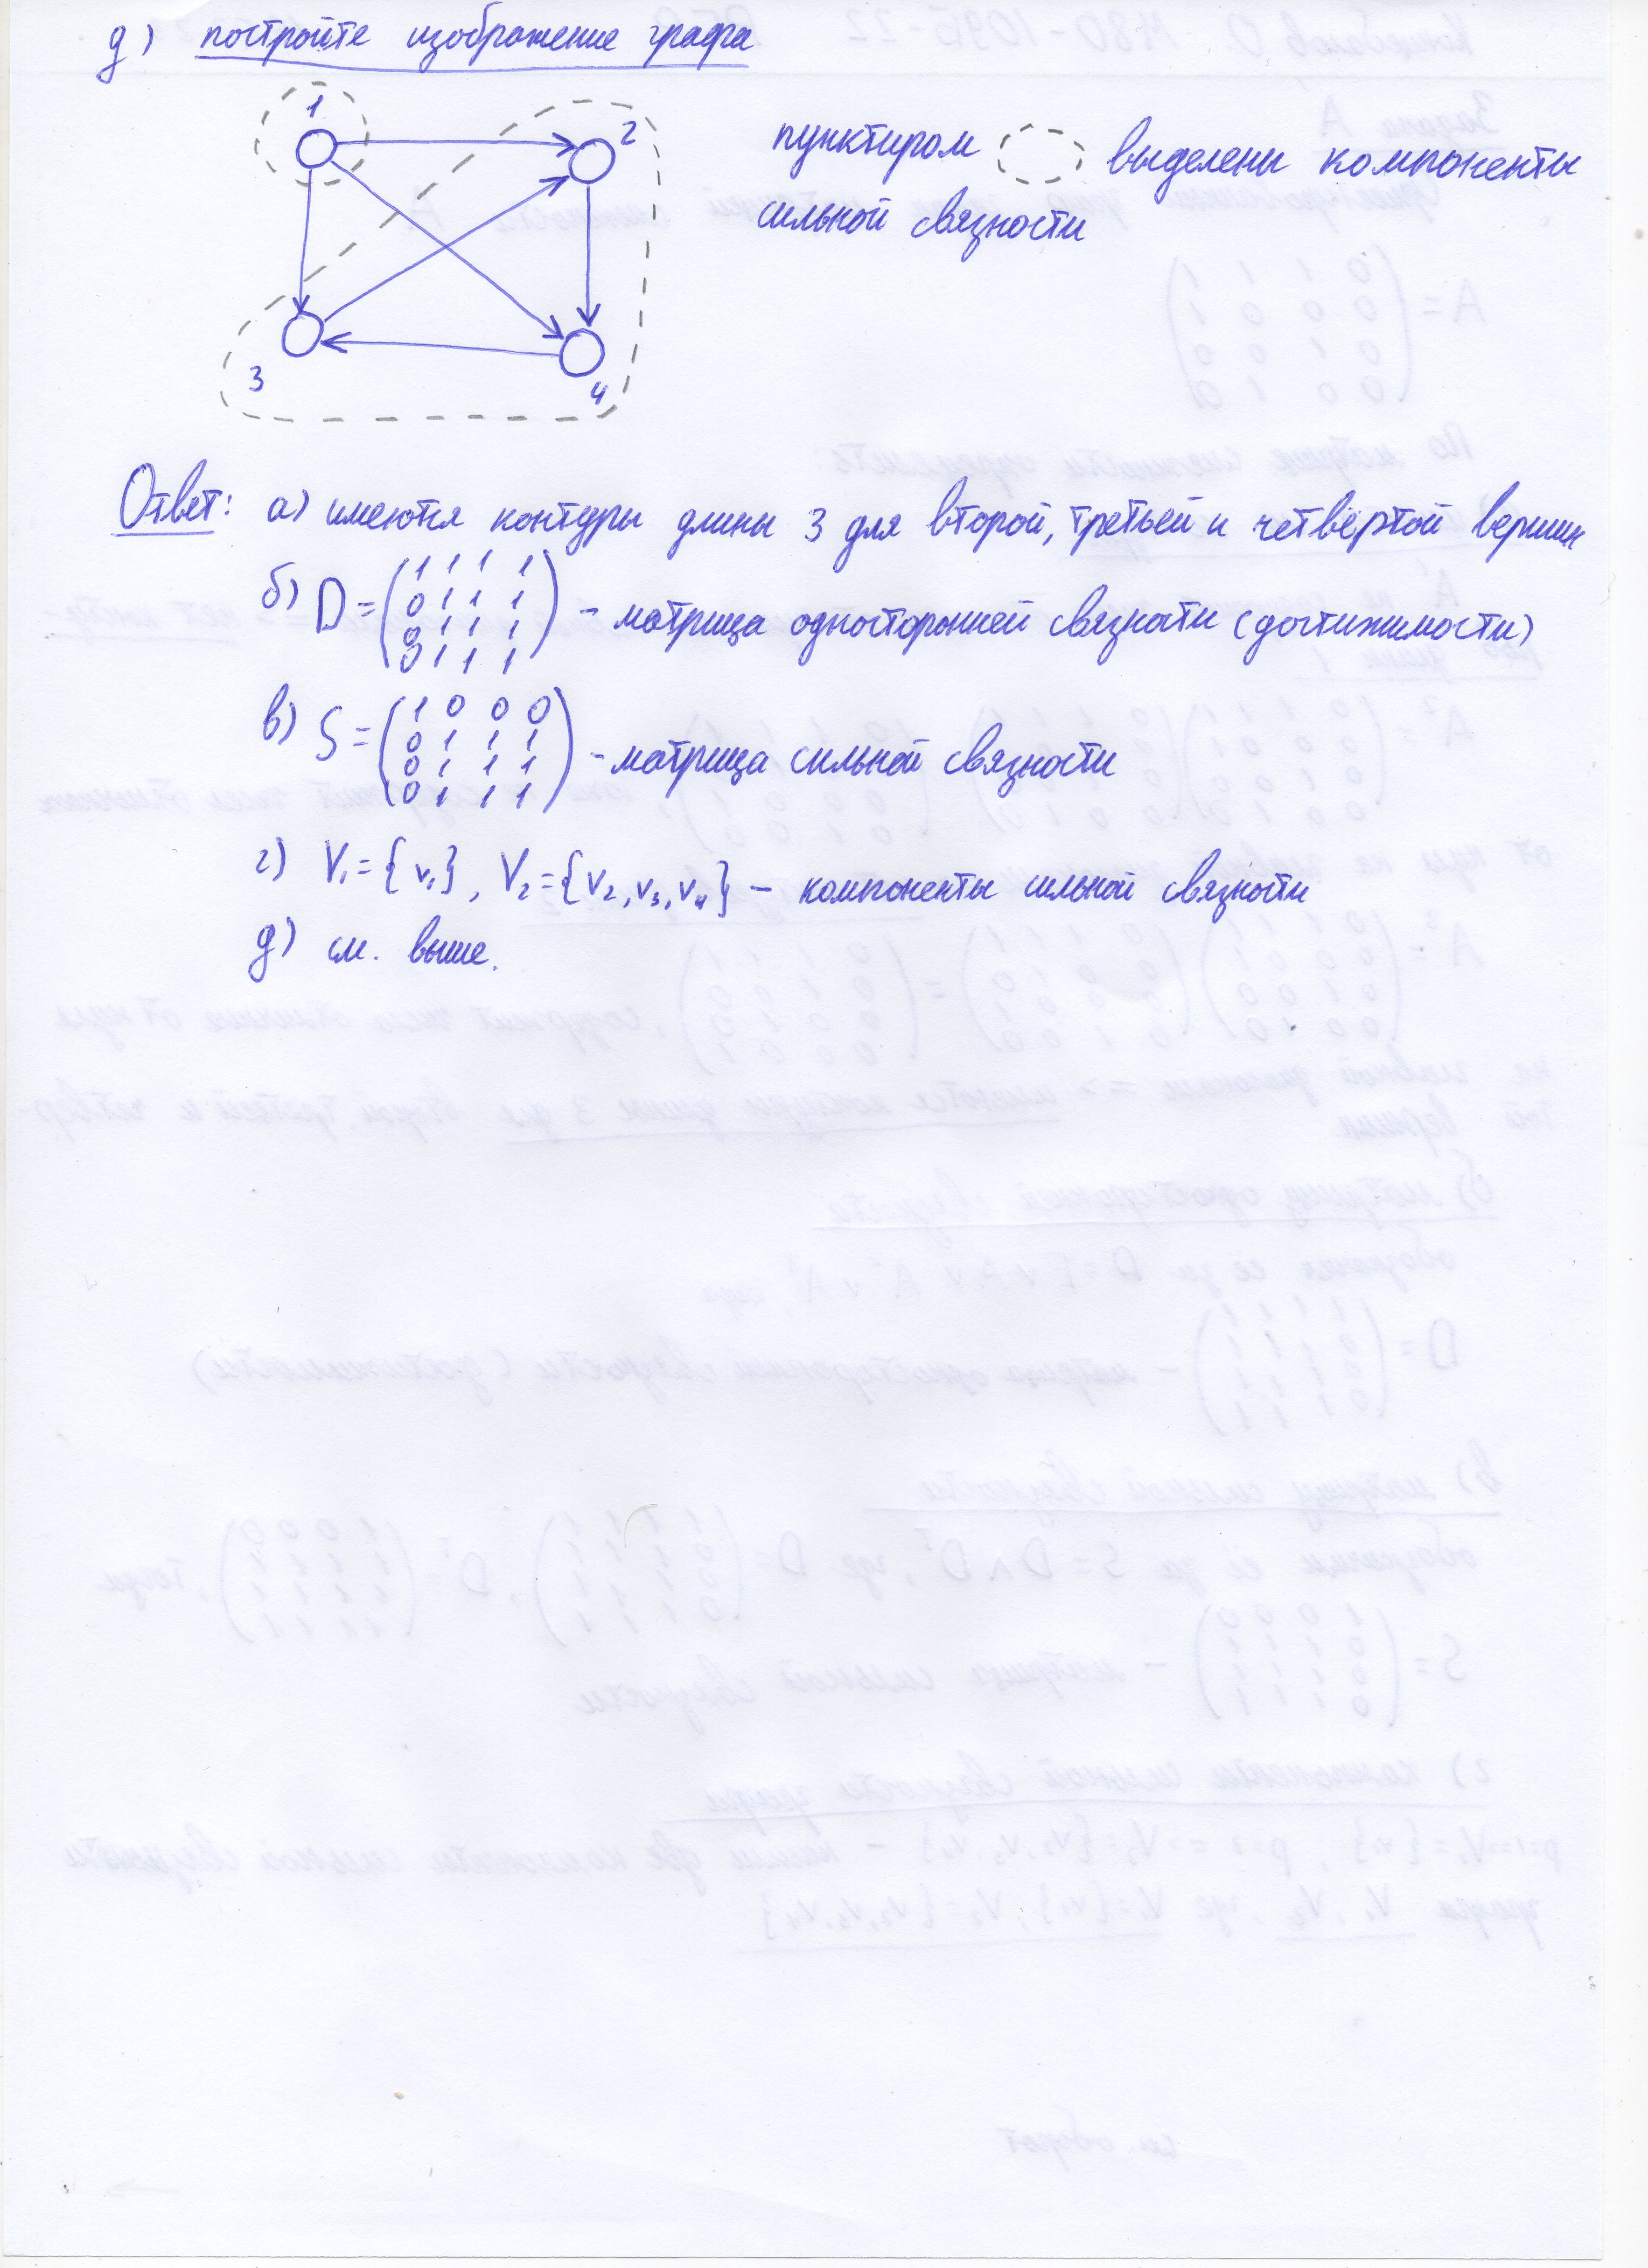 д) постройте изображение графа
1
2
3
4
пунктиром выделены компоненты
сильной связности
Ответ: а) имеются контуры длины 3 для второй, третьей и четвёртой вершин
б) D = (1 1 1 1
0 1 1 1
0 1 1 1
0 1 1 1) – матрица односторонней связности (достижимости)
в) S = (1 0 0 0
0 1 1 1
0 1 1 1
0 1 1 1) – матрица сильной связности
г) V₁ = {v₁}, V₂ = {v₂, v₃, v₄} – компоненты сильной связности
д) см. выше.